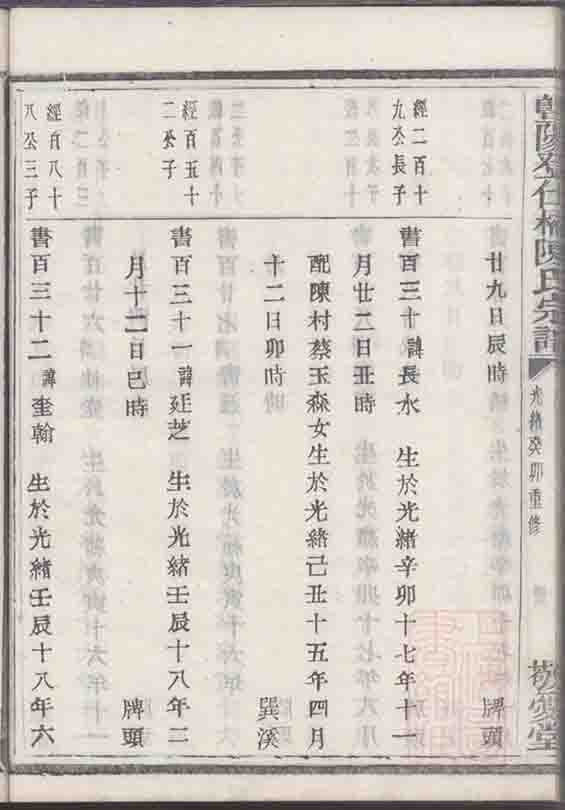 陳氏宗譜
光緒癸卯重修
廿九日辰時 牌頭
經二百十
九公長子
書百三十諱長水 生於光緒辛卯十七年十一
月廿二日丑時
配陳村蔡玉森女生於光緒己丑十五年四月
十二日卯時 巽溪
經百五十
二公子
書百三十一諱廷芝 生於光緒壬辰十八年二
月十二日巳時 牌頭
經百八十
八公三子
書百三十二諱奎翰 生於光緒壬辰十八年六